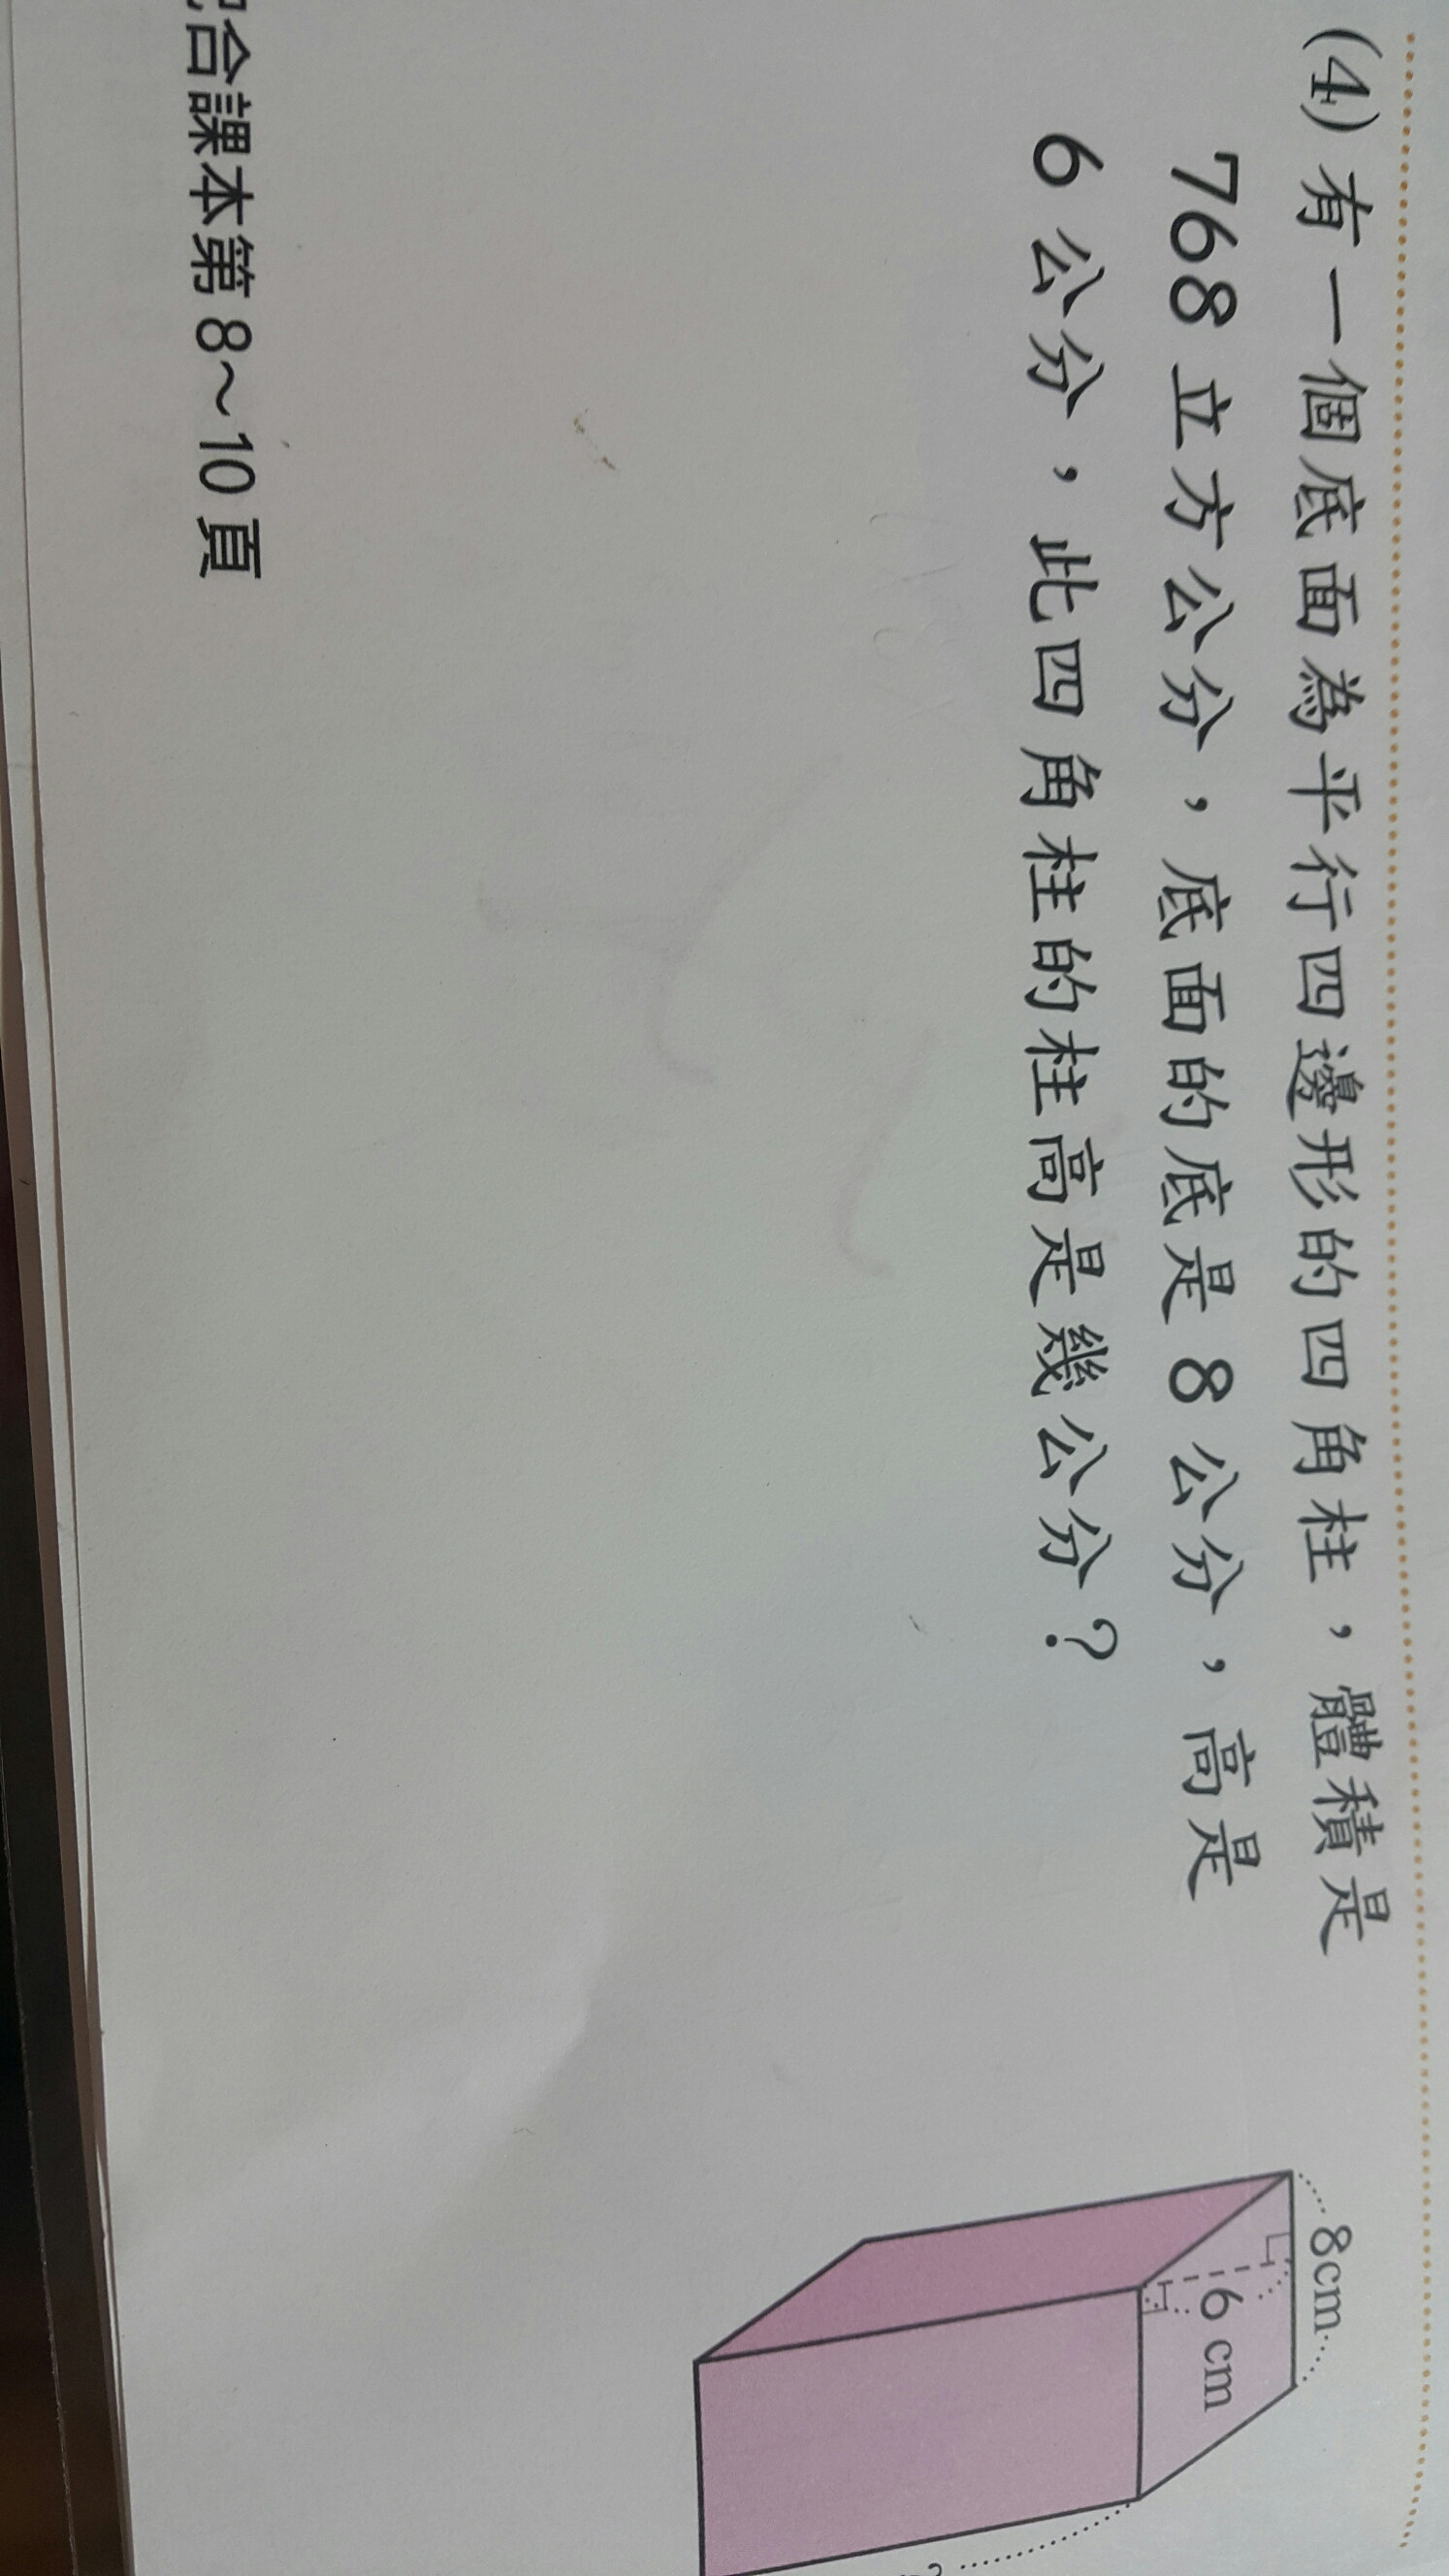 (4) 有一個底面為平行四邊形的四角柱，體積是
768 立方公分，底面的底是 8 公分，高是
6 公分，此四角柱的柱高是幾公分？
8cm
6 cm
合課本第 8～10 頁